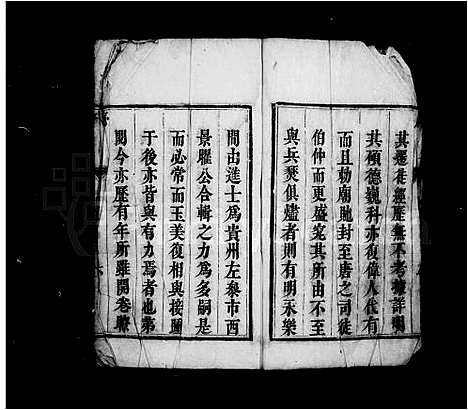 其遷徙經歷無不考據詳明
其碩德巍科亦復偉人代有
而且勅廟貤封至唐之司徒
伯仲而更盛究其所由不至
與兵燹俱燼者則有明永樂
間由進士爲貴州左叅市西
景聖公合輯之力爲多嗣是
而必常而玉美復相與接圖
于後亦皆與有力焉者也第
閱今亦歷有年所雖開卷瞭